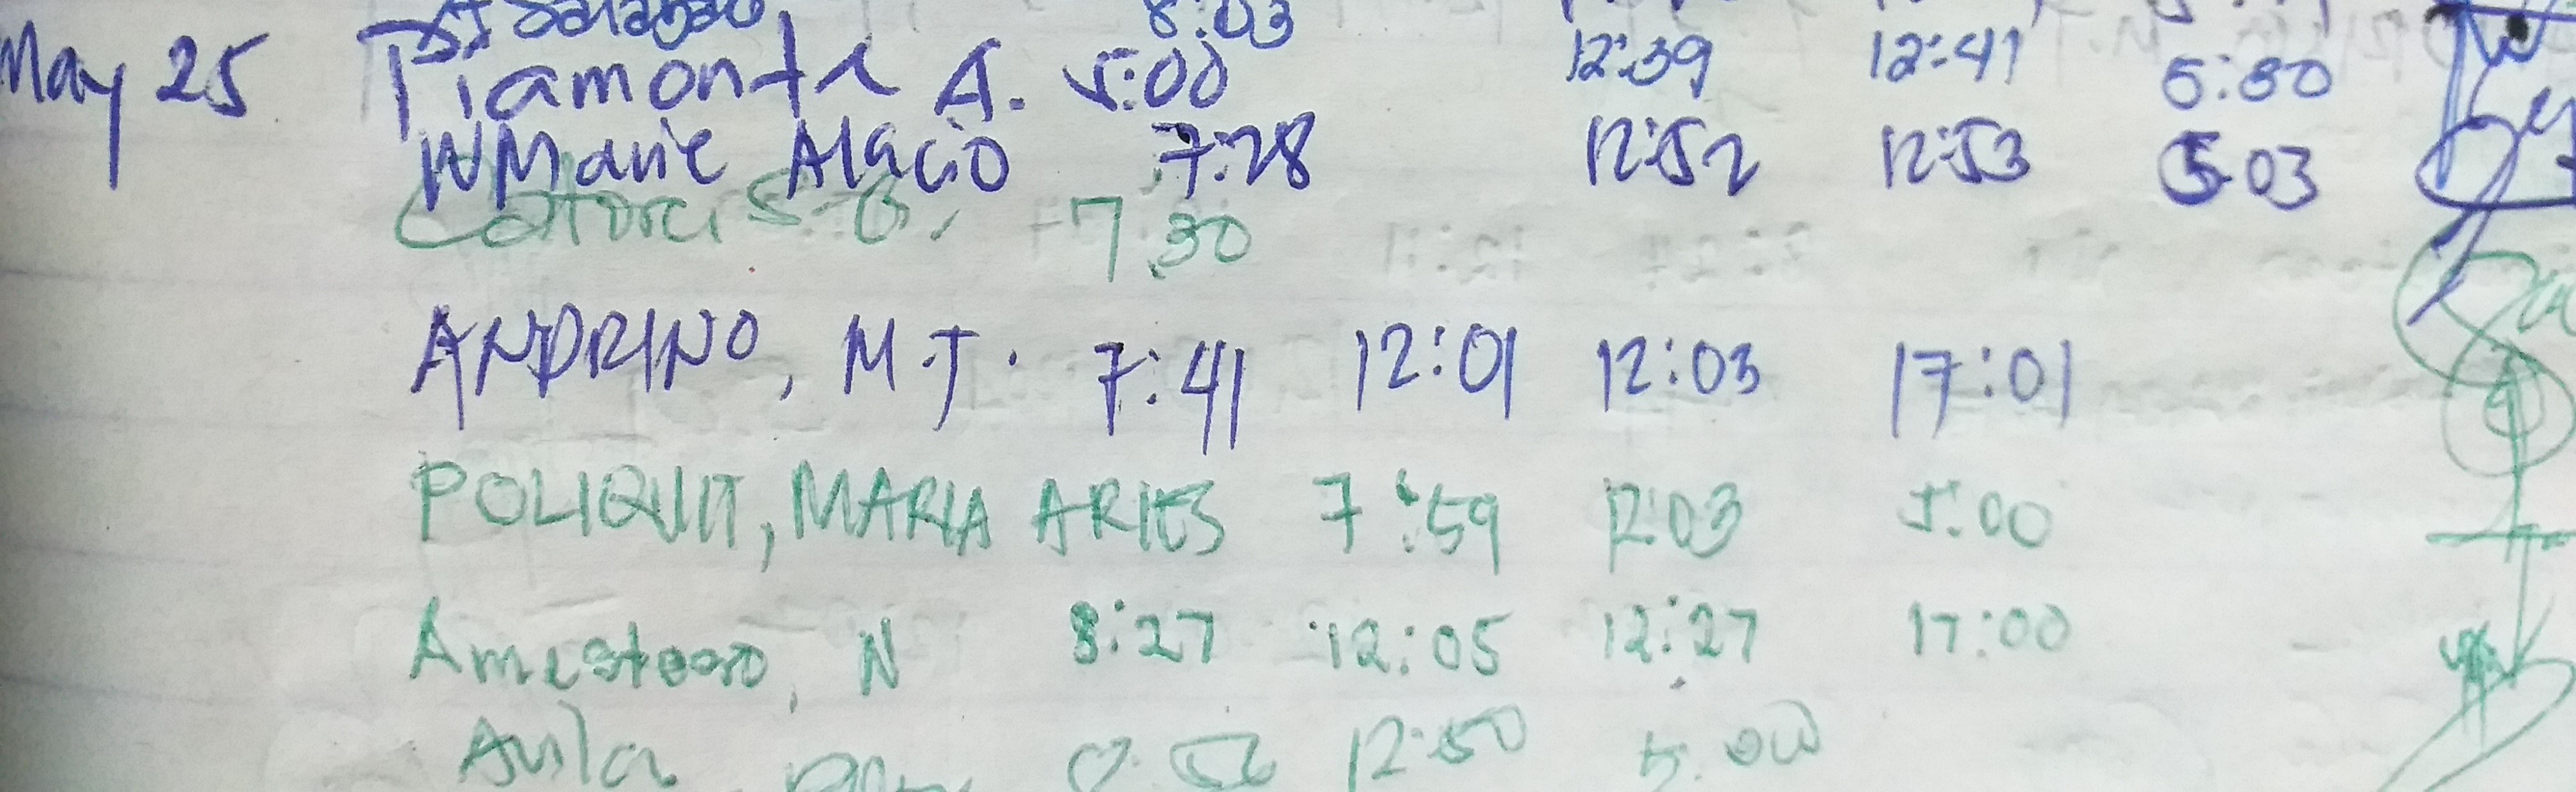 8:03
May 25 Piamonte A. 5:00 12:39 12:41 5:30
Marie Alacio 7:28 12:52 12:53 5:03
7:30
ANDRINO, M.J. 7:41 12:01 12:03 17:01
POLIQUIT, MARIA ARIES 7:59 12:03 5:00
N 8:27 12:05 12:27 17:00
Avila 12:50 5:00